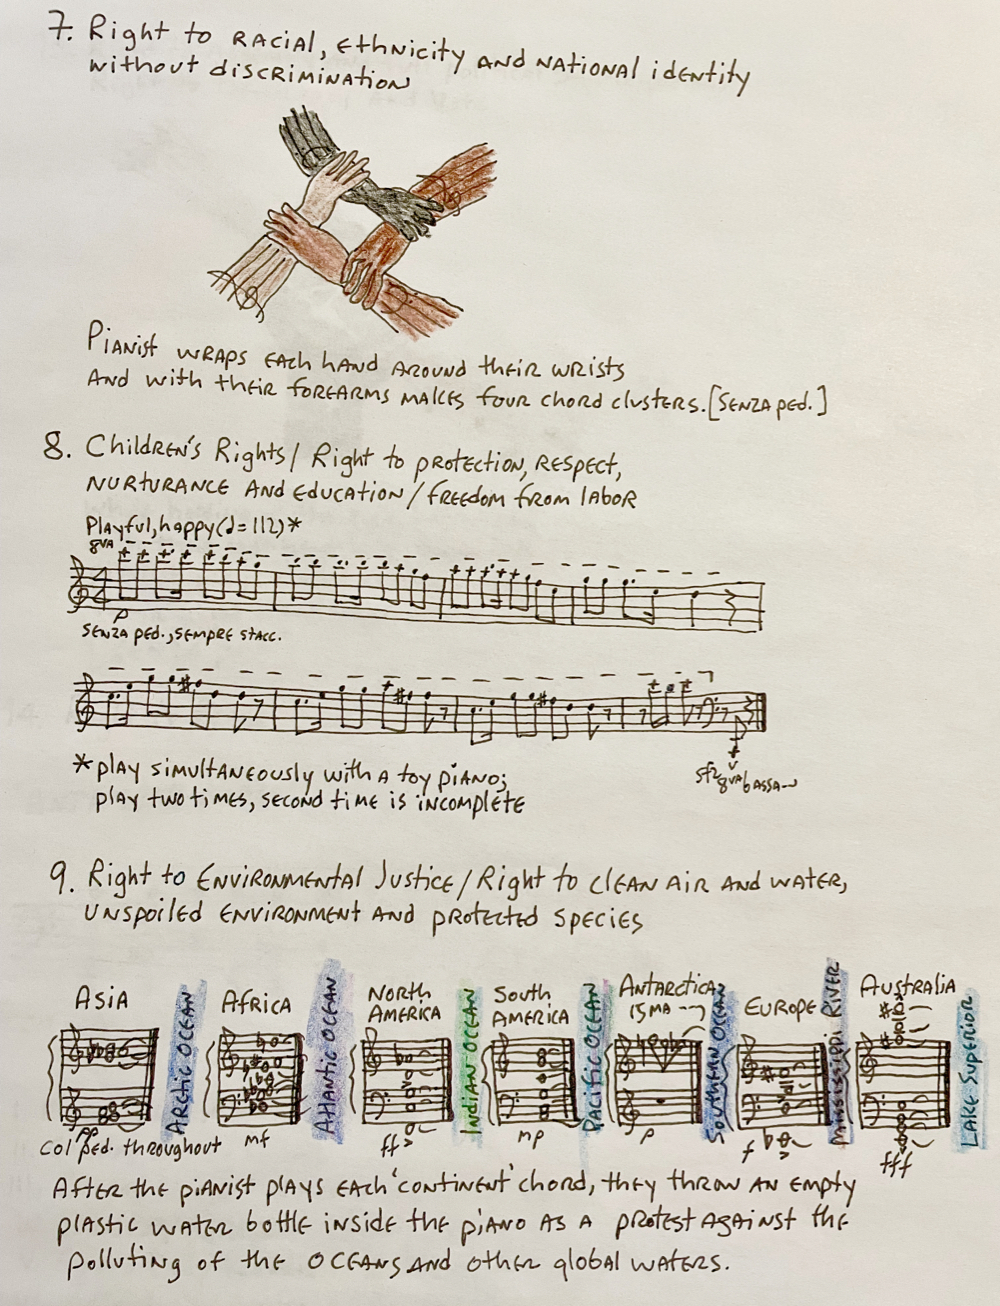 7. Right to RACIAL, Ethnicity AND NATIONAL identity
without discrimination
Pianist wraps each hand around their wrists
And with their forearms makes four chord clusters. [SENZA ped.]
8. Children's Rights / Right to protection, respect,
nurturance and education / freedom from labor
Playful, happy (♩=112)*
8va
p
senza ped., sempre stacc.
sfz
8va bassa
*play simultaneously with a toy piano;
play two times, second time is incomplete
9. Right to Environmental Justice / Right to clean air and water,
unspoiled environment and protected species
Asia
Arctic Ocean
Africa
Atlantic Ocean
North America
Indian Ocean
South America
Pacific Ocean
Antarctica
15ma
Southern Ocean
Europe
Mississippi River
Australia
Lake Superior
pp
mf
ff
mp
p
f
fff
col ped. throughout
After the pianist plays each 'continent' chord, they throw an empty
plastic water bottle inside the piano as a protest against the
polluting of the oceans and other global waters.